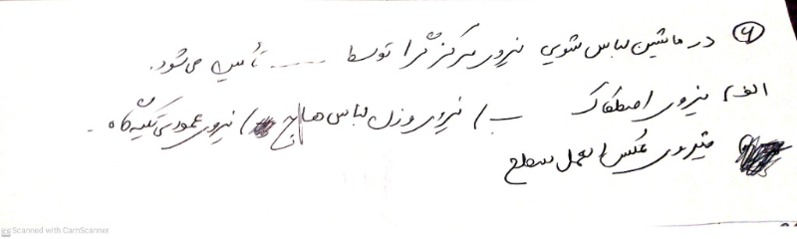 ۶) در ماشین لباس شویی نیروی مرکزگرا توسط ........ تأمین می‌شود.
الف) نیروی اصطکاک ب) نیروی وزن لباس ها ج) نیروی عمودی تکیه گاه.
د) نیروی عکس العمل سطح
Scanned with CamScanner